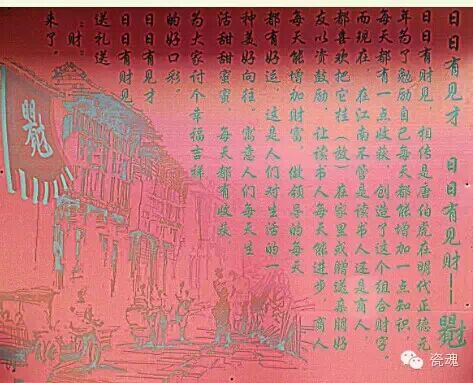 日日有见才　日日有见财——
日日有见财　相传是唐伯虎在明代正德元
年为了勉励自己每天都能增加一点知识，
每天都有一点收获　创造了这个组合财字。
而现在，在江南不管是读书人还是商人，
都喜欢把它挂（放）在家里或赠送亲朋好
友以资鼓励，让读书人每天能进步，商人
每天能增加财富　做领导的每天
都有好运。这是人们对生活的一
种美好向往，寓意人们每天生
活甜甜蜜蜜　每天都有收获，
为大家讨个幸福吉祥
的好口彩。
日日有见才
日日有见财
送礼送
“财”
来了。
瓷魂